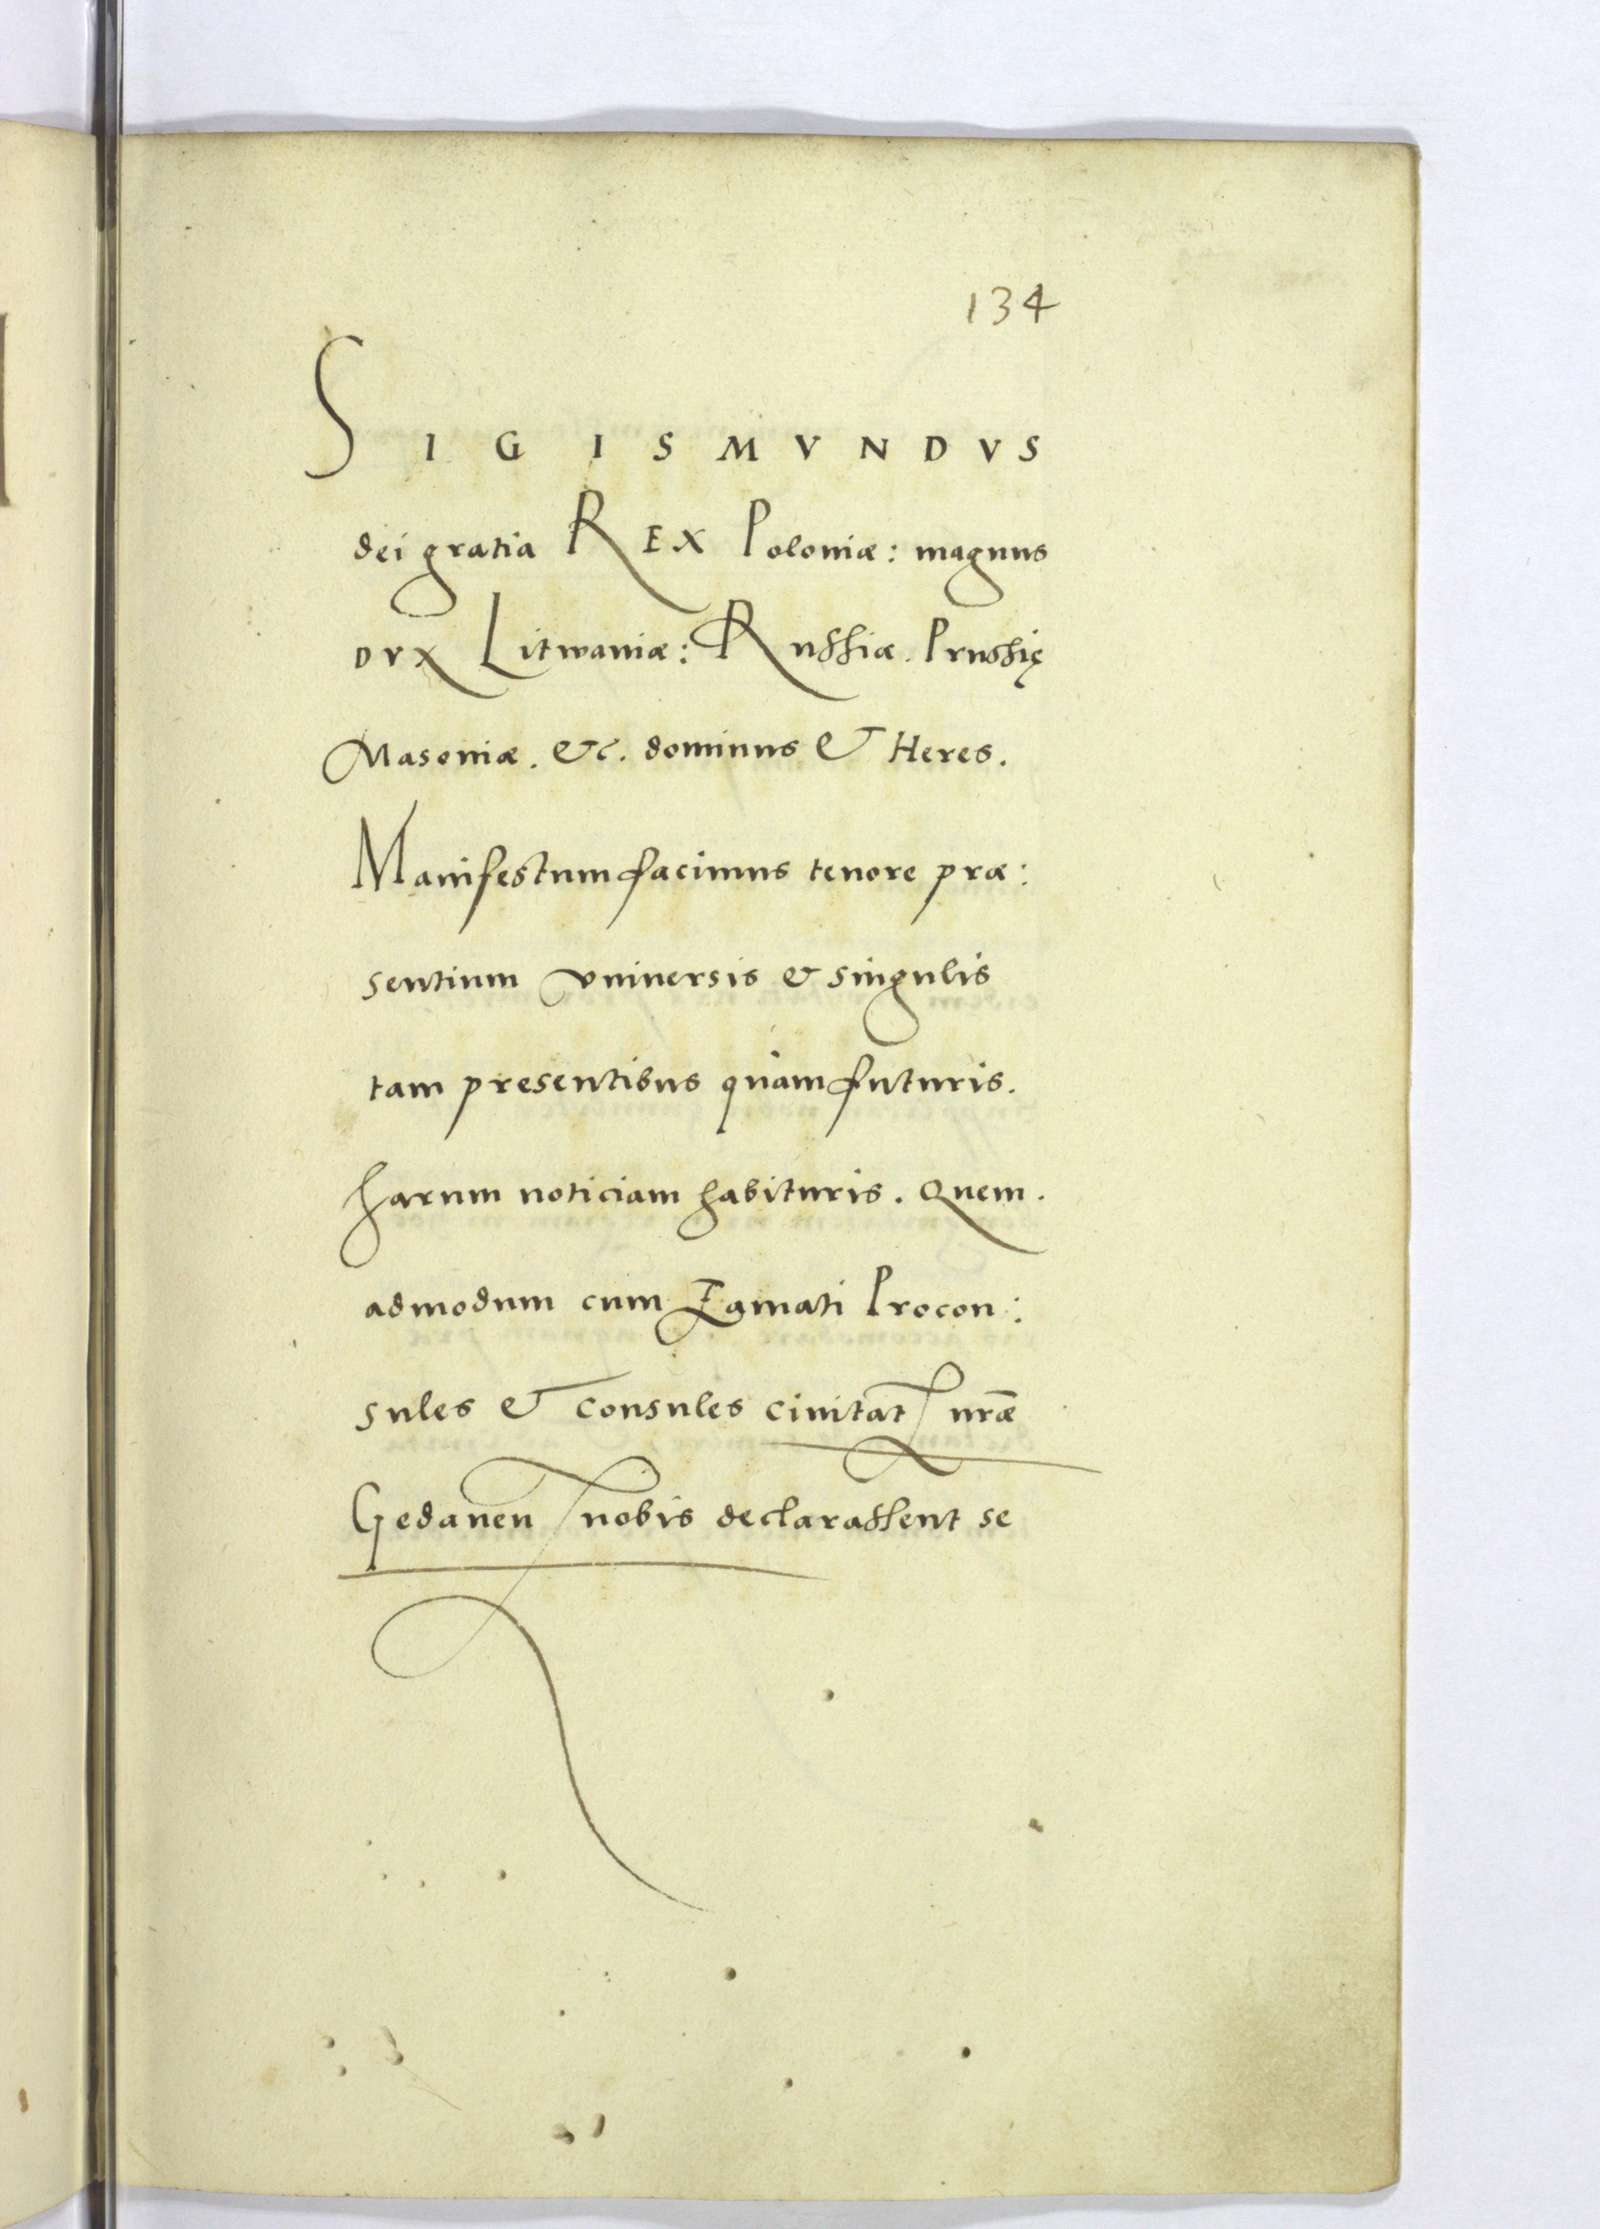 134
SIGISMVNDVS
dei gratia REX Poloniæ: magnus
DVX Litwaniæ: Russiæ. Prussię
Masoniæ. &c. dominus & Heres.
Manifestum facimus tenore præ:
sentium vniuersis & singulis
tam presentibus quam futuris.
harum noticiam habituris. Quem.
admodum cum Famati Procon:
sules & consules ciuitat nræ
Gedanen nobis declarassent se